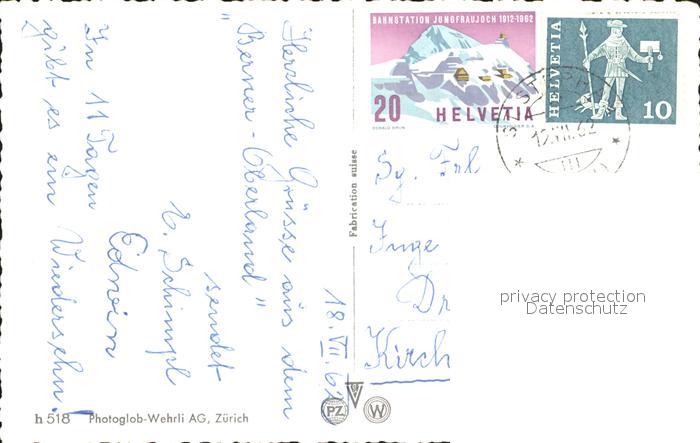 18.VII.62
Herzliche Grüsse aus dem
"Berner-Oberland"
sendet
E. Schimpl
Edwin
In 11 Tagen
gibt es ein Wiedersehn!
h 518 Photoglob-Wehrli AG, Zürich
Fabrication suisse
PZ W
BAHNSTATION JUNGFRAUJOCH 1912-1962
20 HELVETIA
HELVETIA
10
Sg. Frl
Inge
Dr
Kirch
privacy protection
Datenschutz